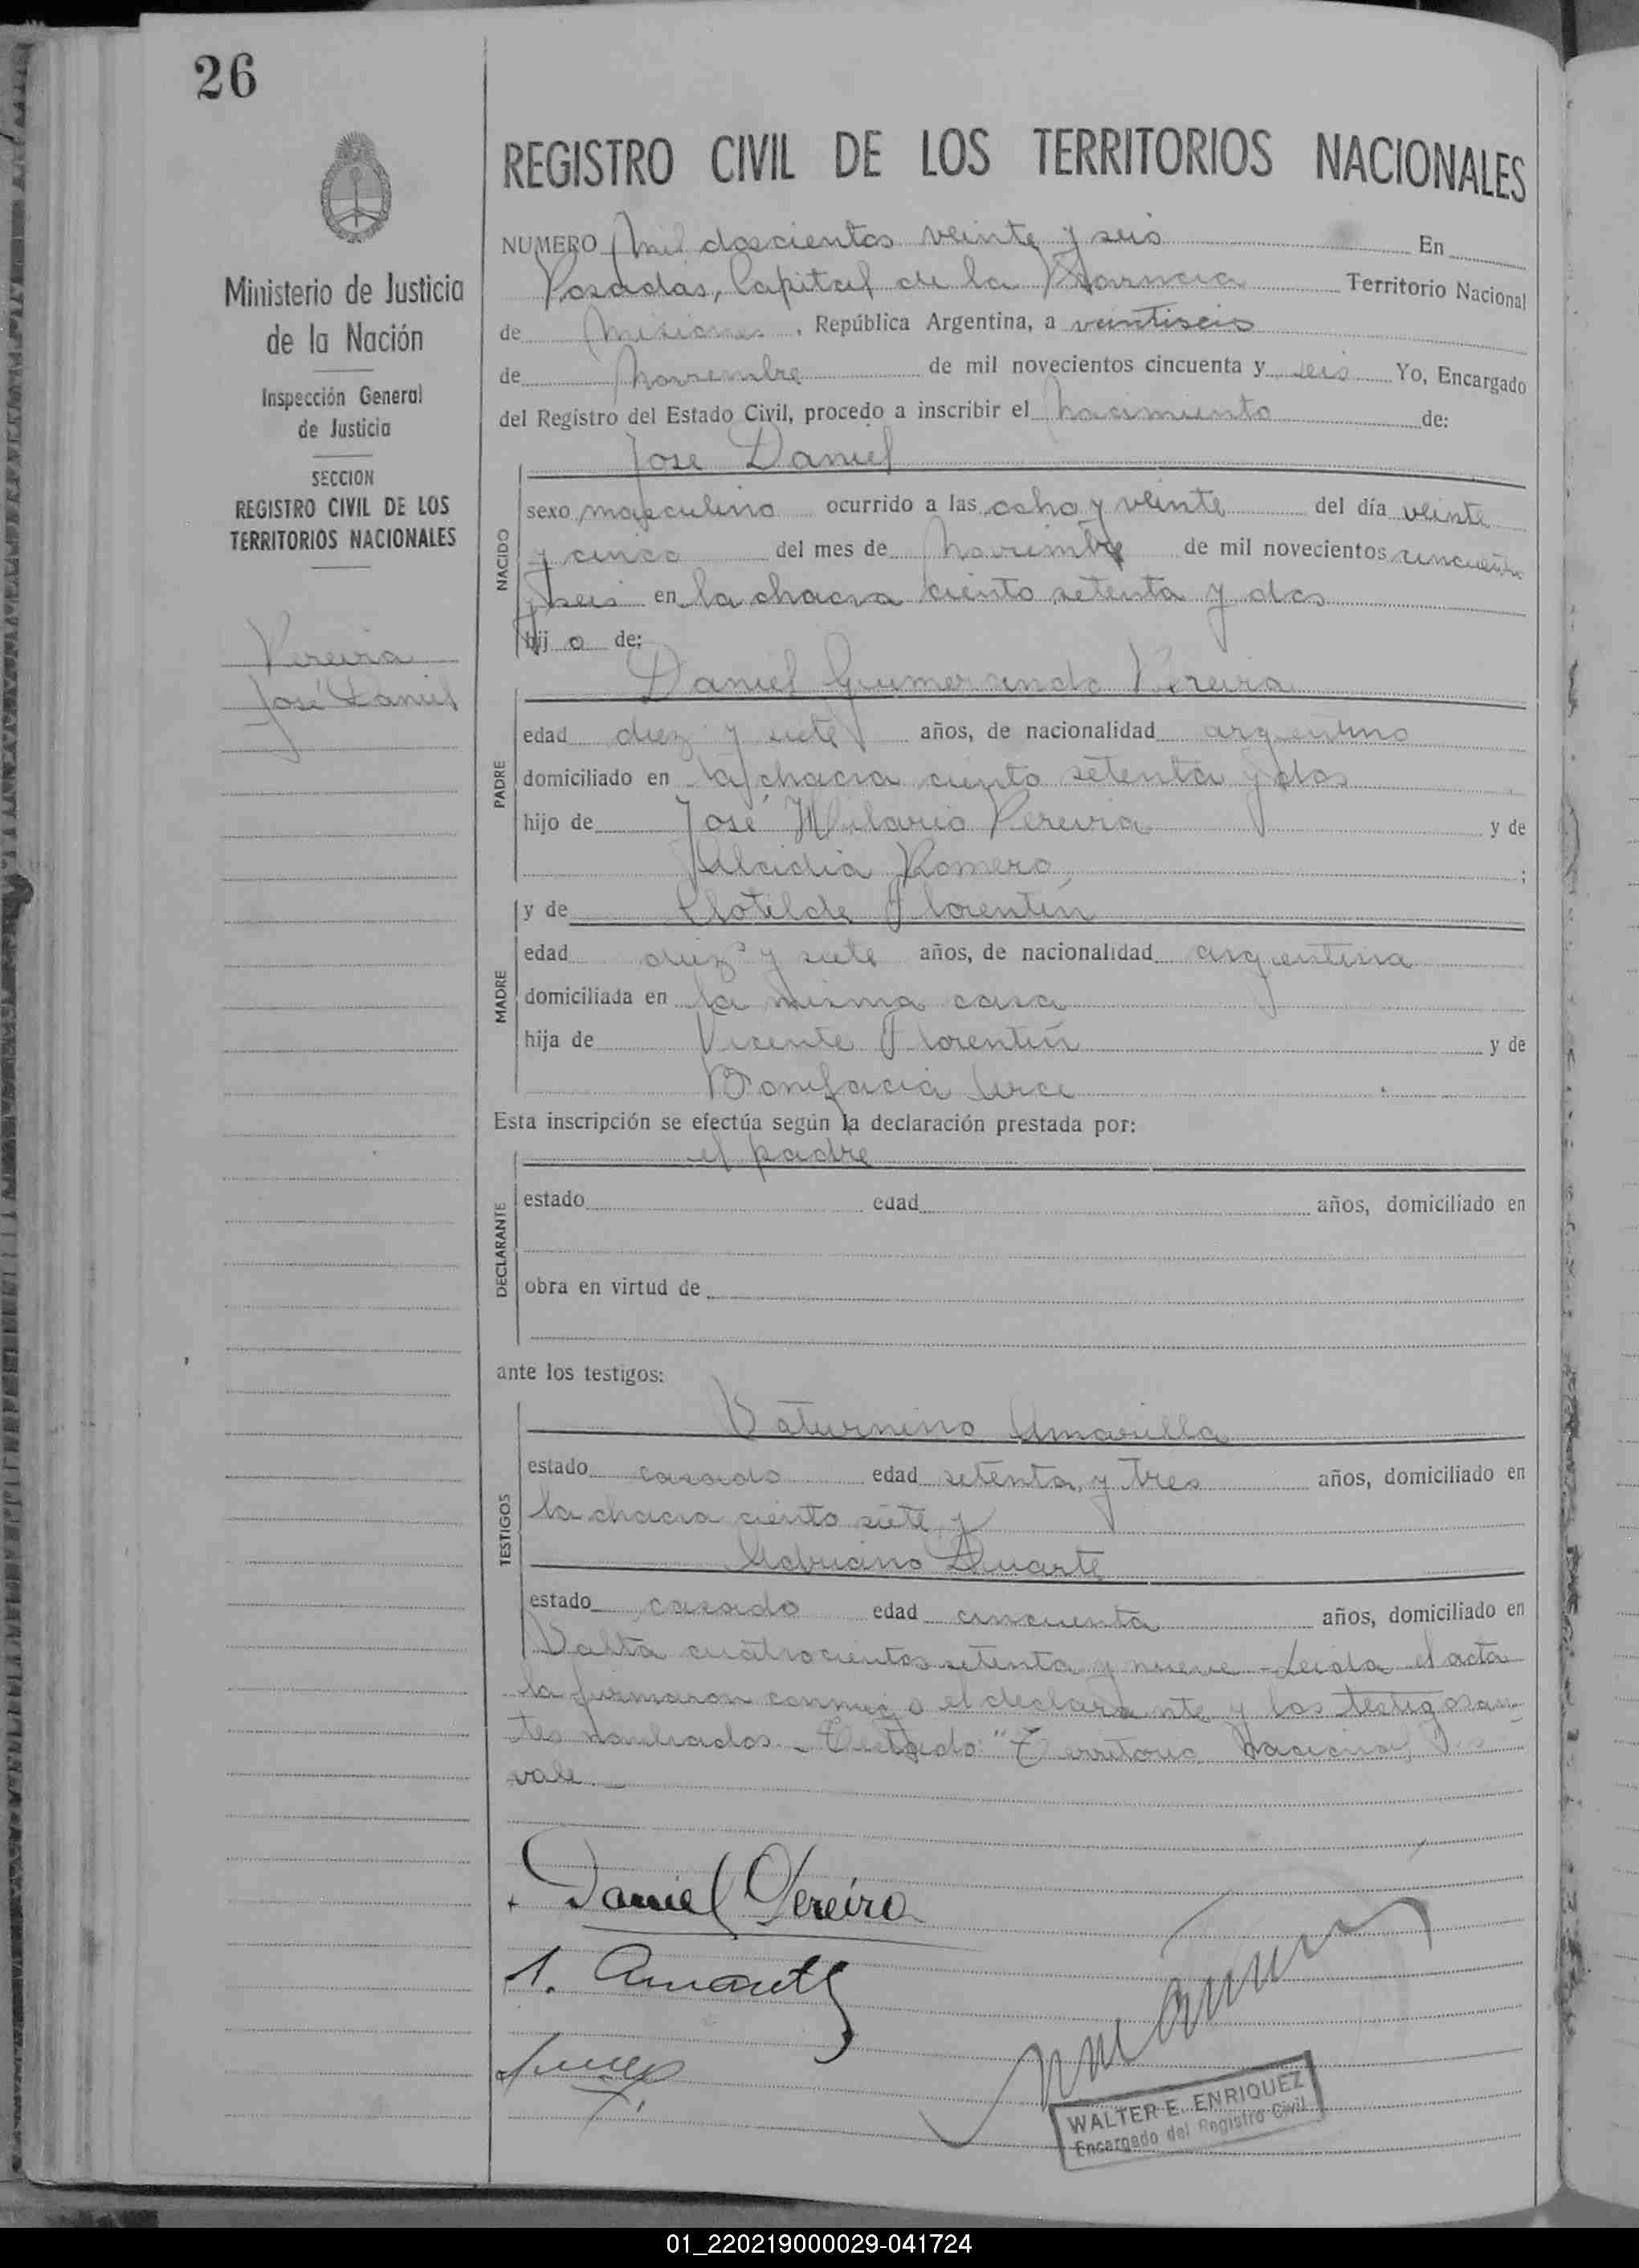 26
REGISTRO CIVIL DE LOS TERRITORIOS NACIONALES
Ministerio de Justicia
de la Nación
Inspección General
de Justicia
SECCION
REGISTRO CIVIL DE LOS
TERRITORIOS NACIONALES
Pereira
José Daniel
NUMERO Mil doscientos veinte y seis En
Posadas, Capital de la Provincia Territorio Nacional
de Misiones, República Argentina, a veintiseis
de Noviembre de mil novecientos cincuenta y seis Yo, Encargado
del Registro del Estado Civil, procedo a inscribir el nacimiento de:
José Daniel
NACIDO
sexo masculino ocurrido a las ocho y veinte del día veinte
y cinco del mes de Noviembre de mil novecientos cincuenta
y seis en la chacra ciento setenta y dos
hijo de:
Daniel Gumersindo Pereira
PADRE
edad diez y siete años, de nacionalidad argentino
domiciliado en la chacra ciento setenta y dos
hijo de José Hilario Pereira y de
Alcidia Romero;
y de Clotilde Florentín
MADRE
edad diez y siete años, de nacionalidad argentina
domiciliada en la misma casa
hija de Vicente Florentín y de
Bonifacia
Esta inscripción se efectúa según la declaración prestada por:
el padre
DECLARANTE
estado edad años, domiciliado en
obra en virtud de
ante los testigos:
Saturnino Amarilla
TESTIGOS
estado casado edad setenta y tres años, domiciliado en
la chacra ciento siete y
Adriano Duarte
estado casado edad cincuenta años, domiciliado en
Salta cuatrocientos setenta y nueve - Leída el acta
la firmaron conmigo el declarante y los testigos an-
tes nombrados - Testado: "Territorio Nacional"
vale.
Daniel Pereira
WALTER E. ENRIQUEZ
Encargado del Registro Civil
01_220219000029-041724